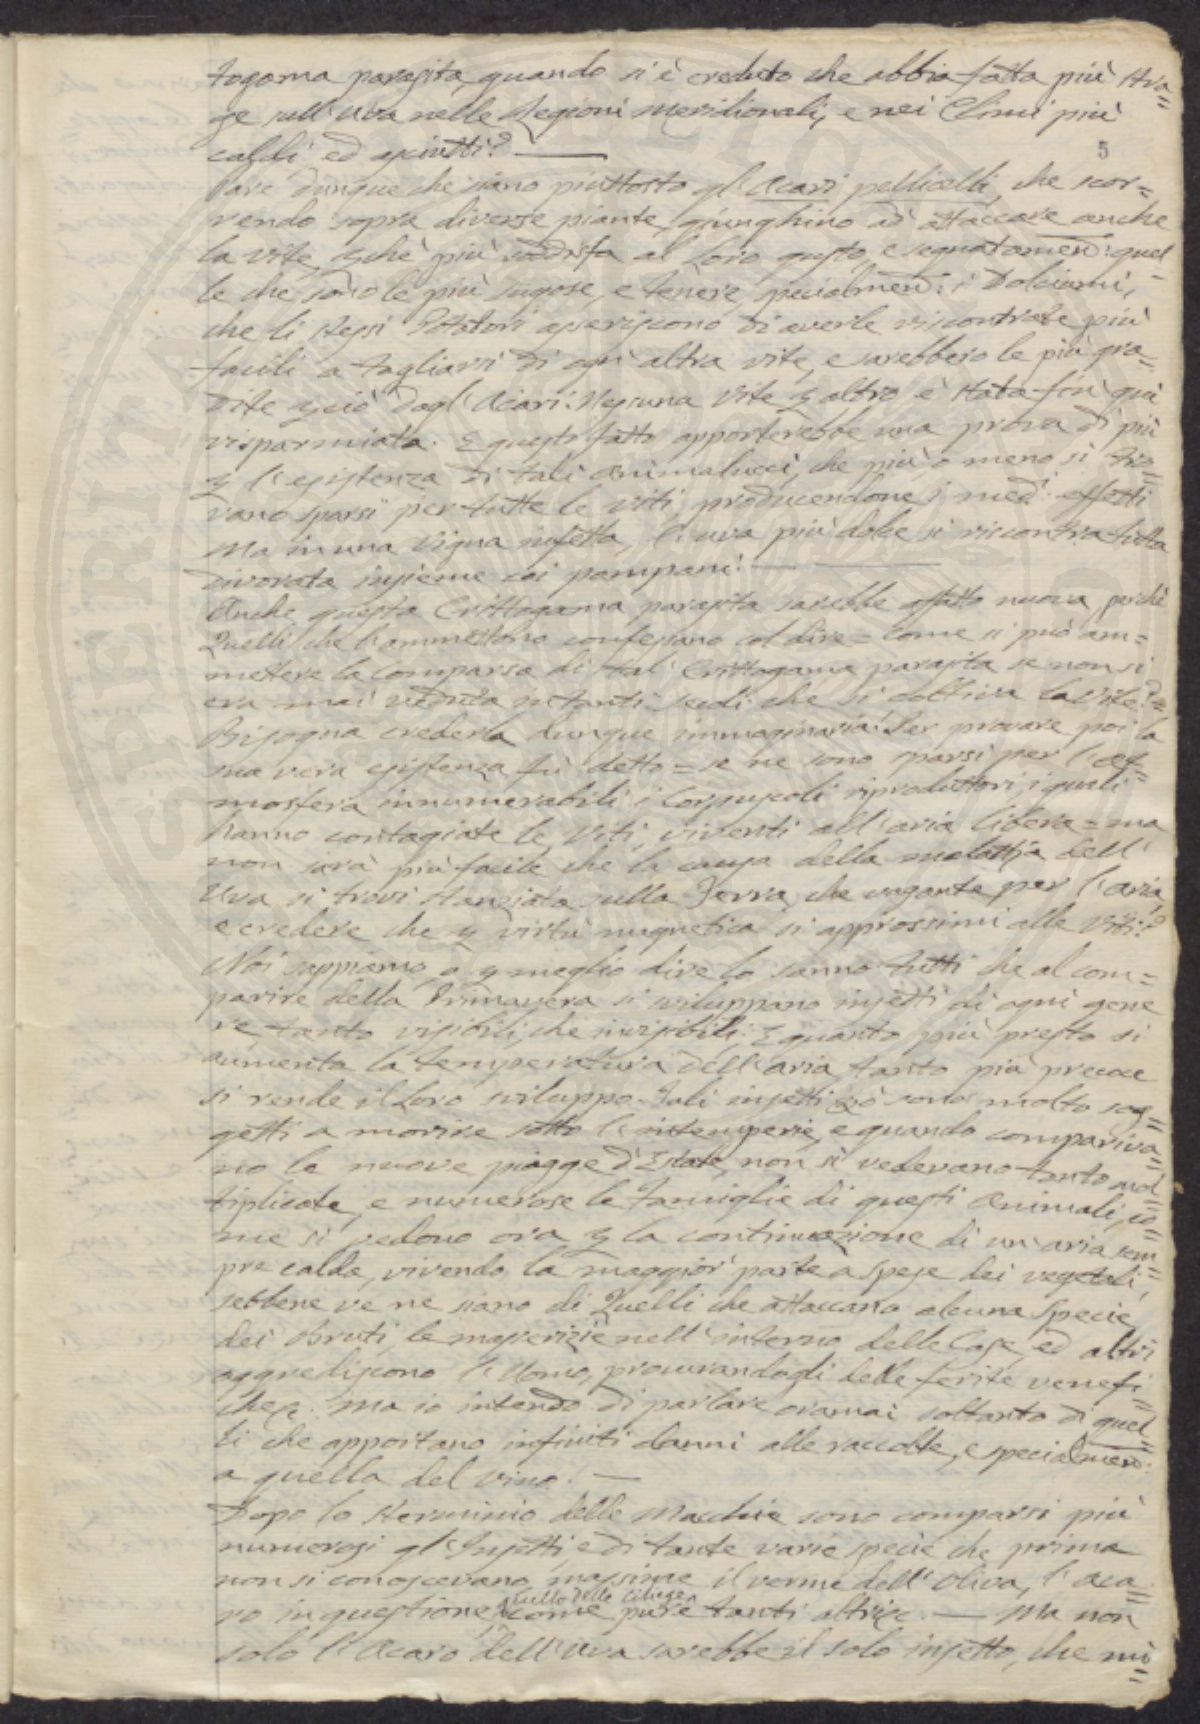 togama parasita, quando si è creduto che abbia fatta più stra=
ge sull'uva nelle Regioni meridionali, e nei Climi più
caldi ed asciutti? ——
5
Pare dunque che siano piuttosto gl'Acari pellicelli, che scor=
rendo sopra diverse piante, giunghino ad attaccare anche
la vite, che più soddisfa al loro gusto, e segnatamen: quel=
le che sono le più sugose, e tenere, specialmen: i Dolciami,
che li stessi Potatori asseriscono di averle riscontrate più
facili a tagliarsi di ogni altra vite, e sarebbero le più gra=
dite ciò dagl'Acari: Nessuna Vite altro è stata fin quà
risparmiata. E questo fatto apporterebbe una prova di più
l'esistenza di tali animalucci, che più o meno si tro=
vano sparsi per tutte le viti, producendone i med: effetti
Ma in una vigna infetta, l'uva più dolce si riscontra tutta
divorata insieme coi pampani: —— ——
Anche questa Crittogama parasita sarebbe affatto nuova, perchè
Quelli che l'ammettono confessano col dire = Come si può am=
mettere la Comparsa di tal' Crittogama parasita se non si
era mai veduta in tanti secoli che si coltiva la vite? =
Bisogna crederla dunque immaginaria! Per provare poi la
sua vera esistenza fù detto = se ne sono sparsi per l'at=
mosfera innumerabili i Corpuscoli riproduttori, i quali
hanno contagiate le Viti, viventi all'aria libera = ma
non sarà più facile che la causa della malattia dell'
Uva si trovi stanziata sulla Terra, che vagante per l'aria,
e credere che virtù magnetica si approssimi alle Viti?
Noi sappiamo, o meglio dire lo sanno tutti che al com=
parire della Primavera si sviluppano insetti di ogni gene
re, tanto visibili, che invisibili: E quanto più presto si
aumenta la temperatura dell'aria, tanto più precoce
si rende il loro sviluppo. Tali insetti sono molto sog=
getti a morire sotto l'intemperie, e quando compariva=
no le nuove piogge d'Estate, non si vedevano tanto mol=
tiplicate, e numerose le famiglie di questi Animali, co=
me si vedono ora la continuazione di un'aria sem=
pre calda, vivendo la maggior parte a spese dei vegetali,
sebbene ve ne siano di Quelli che attaccano alcuna Specie
dei Bruti, le masserizie nell'interno delle Case, ed altri
aggrediscono l'Uomo, procurandogli delle ferite venefi=
che. Ma io intendo di parlare oramai soltanto di quel=
li che apportano infiniti danni alle raccolte, e specialmen:
a quella del vino. —
Dopo lo sterminio delle Macchie sono comparsi più
numerosi gl'Insetti, e di tante varie specie che prima
non si conoscevano, massime il verme dell'Oliva, l'aca=
ro in questione, come pure tanti altri. — Ma non
solo l'Acaro dell'Uva sarebbe il solo insetto, che mi=